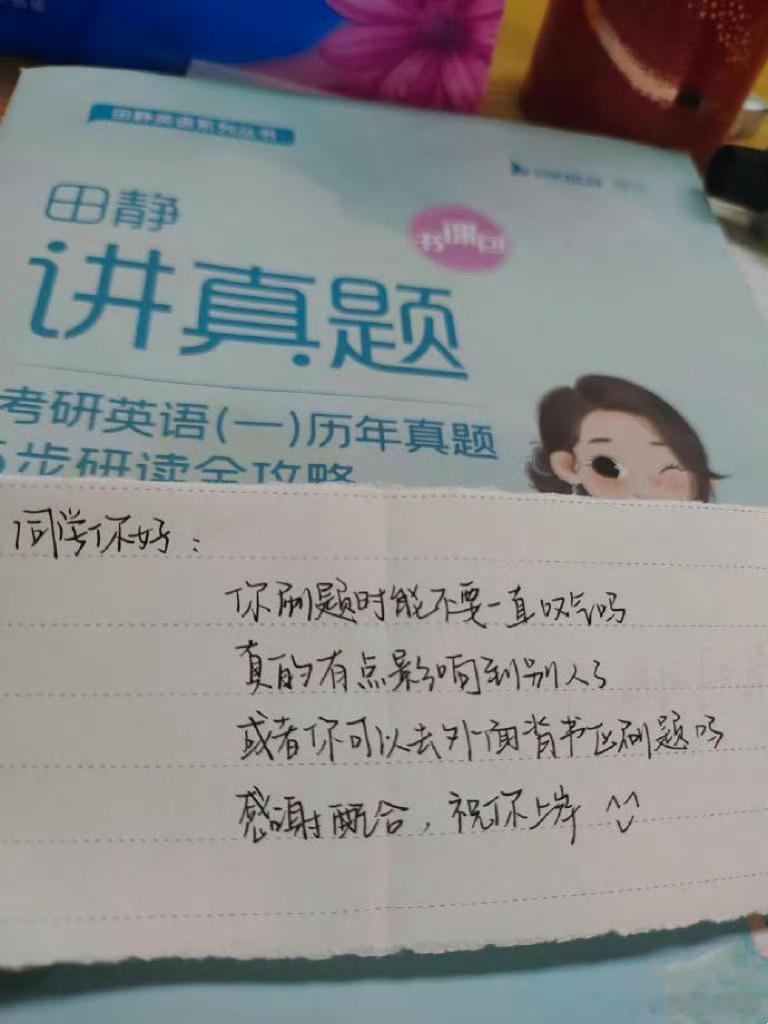 田静英语系列丛书
田静
讲真题
书课包
考研英语(一)历年真题
5步研读全攻略
同学你好：
你刷题时能不要一直叹气吗
真的有点影响到别人了
或者你可以去外面背书区刷题吗
感谢配合，祝你上岸 ^^